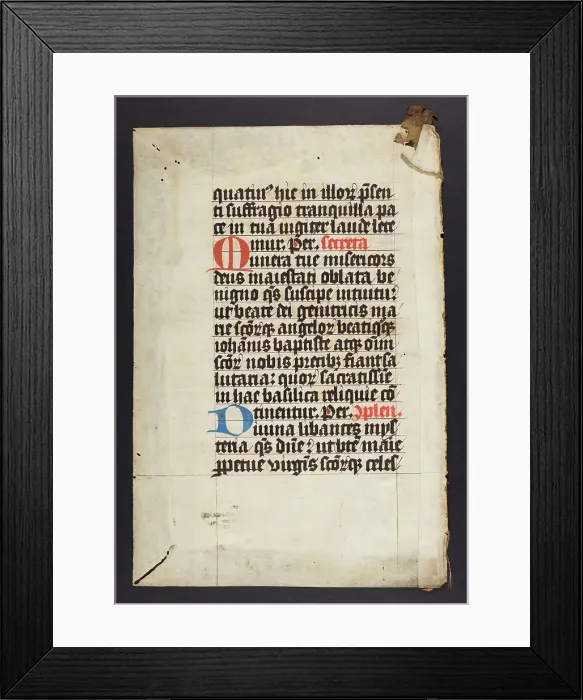 quatinꝰ hic in illoꝝ p̄sen
ti suffragio tranquilla pa
ce in tua iugiter laude lete
mur. Per. secreta
Munera tue misericors
deus maiestati oblata be
nigno qs̄ suscipe intuitu:
ut beate dei genitricis ma
rie sc̄oꝝqꝫ angeloꝝ beatiqꝫ
iohānis baptiste atqꝫ oīm
sc̄oꝝ nobis precibꝫ fiant sa
lutaria: quoꝝ sacratissīe
in hac basilica reliquie cō
tinentur. Per. Ↄplen.
Diuina libantes mys
teria qs̄ dn̄e: ut bt̄e marie
ꝑpetue virgīs sc̄oꝝqꝫ celes